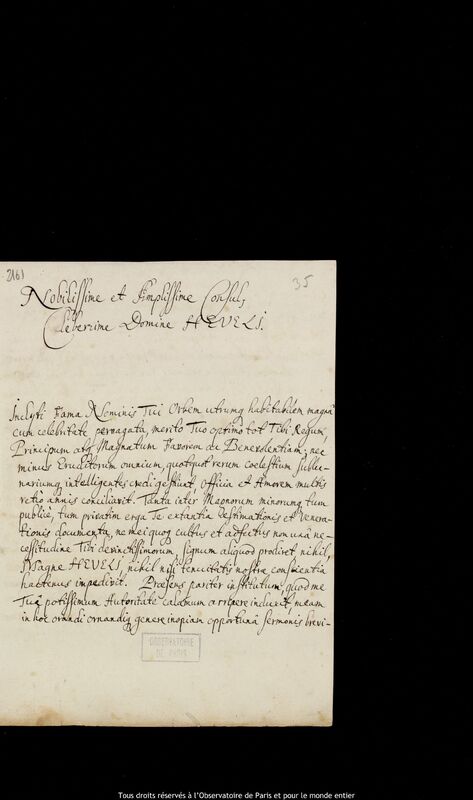 2161
35
Nobilissime et Amplissime Consul,
Celeberrime Domine HEVELI.
Inclyti Fama Nominis Tui Orbem utrumq habitabilem magnâ
cum celebritate pervagata, merito Tuo optimo tot Tibi Regum,
Principum atq Magnatum Favorem ac Benevolentiam; nec
minus Eruditorum omnium, quotquot rerum coelestium sublu-
nariumq intelligentes credi gestiunt, Officia et Amorem multis
retro annis conciliavit. Tanta inter Magnorum minorumq tum
publicè, tum privatim erga Te extantia Aestimationis et Venera-
tionis documenta, ne mei quoq cultus et adfectus non unâ ne-
cessitudine Tibi devinctissimorum, signum aliquod prodiret, nihil,
Magne HEVELI, nihil nisi tenuitatis nostrae conscientia
hactenus impedivit. Praesens pariter institutum, quod me
Tuâ potissimum Autoritate calamum arripere induxit, meam
in hoc orandi ornandiq genere inopiam opportunâ sermonis brevi-
OBSERVATOIRE
DE PARIS
Tous droits réservés à l'Observatoire de Paris et pour le monde entier